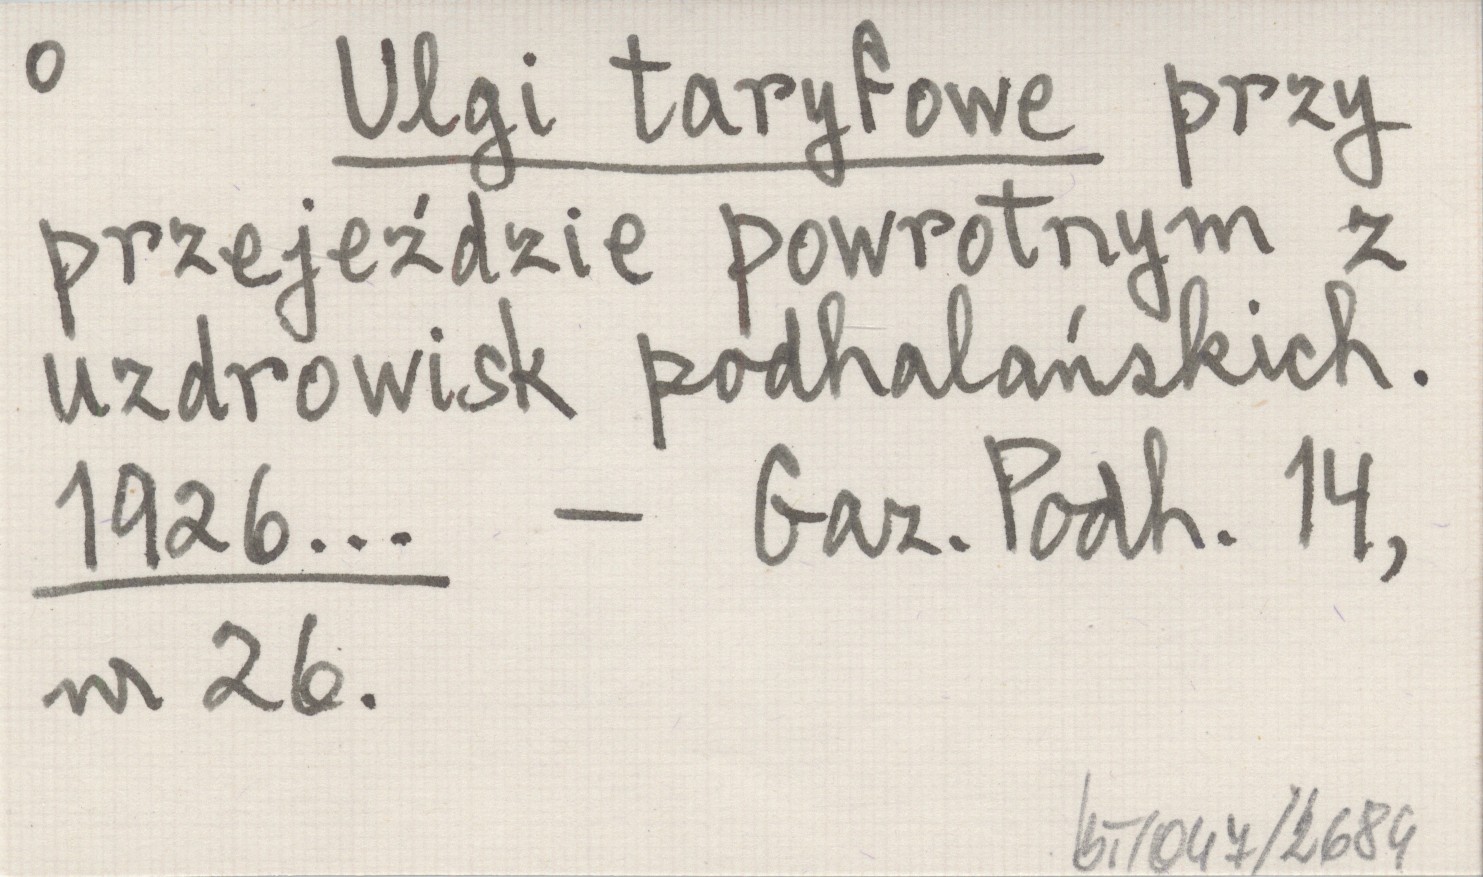 o Ulgi taryfowe przy
przejeździe powrotnym z
uzdrowisk podhalańskich.
1926... – Gaz. Podh. 14,
nr 26.